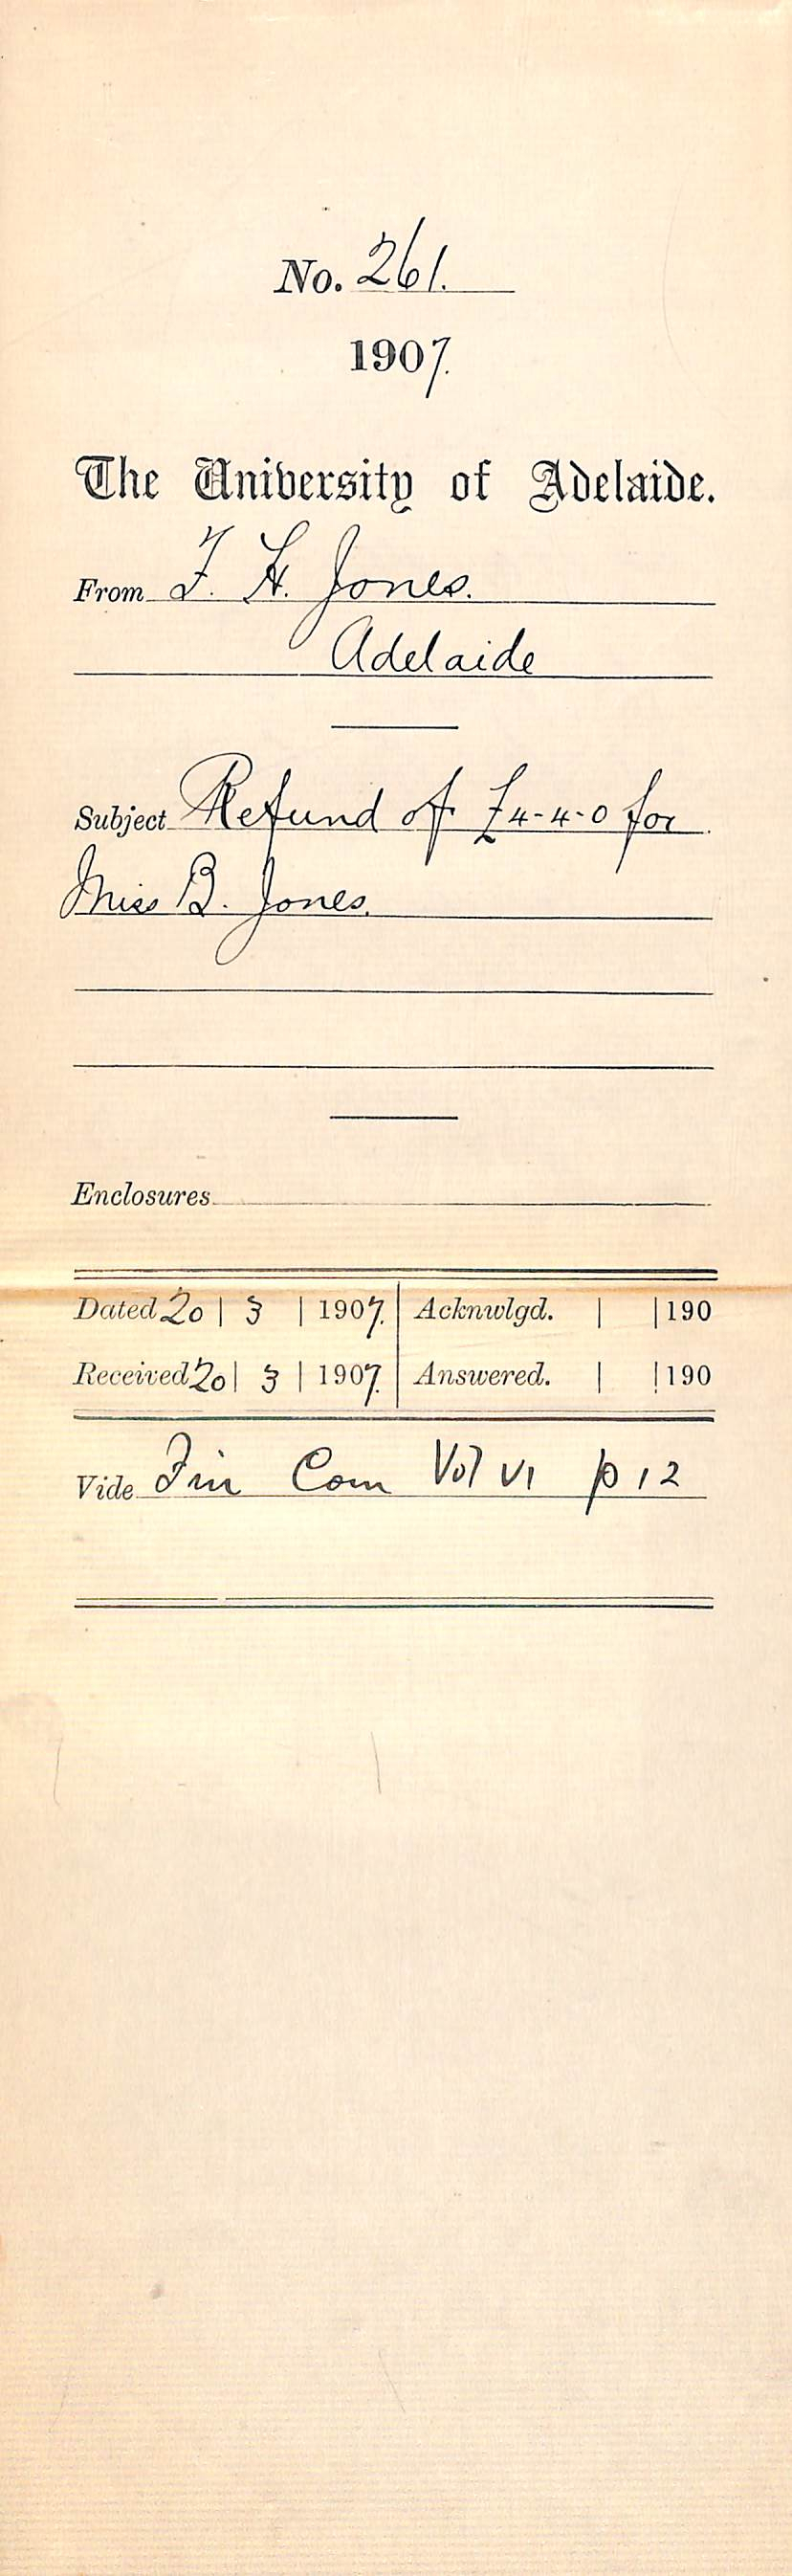 No. 261.
1907.
The University of Adelaide.
From F. H. Jones.
Adelaide
Subject Refund of £4-4-0 for
Miss B. Jones.
Enclosures
Dated 20 | 3 | 1907. Acknwlgd. | | 190
Received 20 | 3 | 1907. Answered. | | 190
Vide Fin Com Vol VI p 12